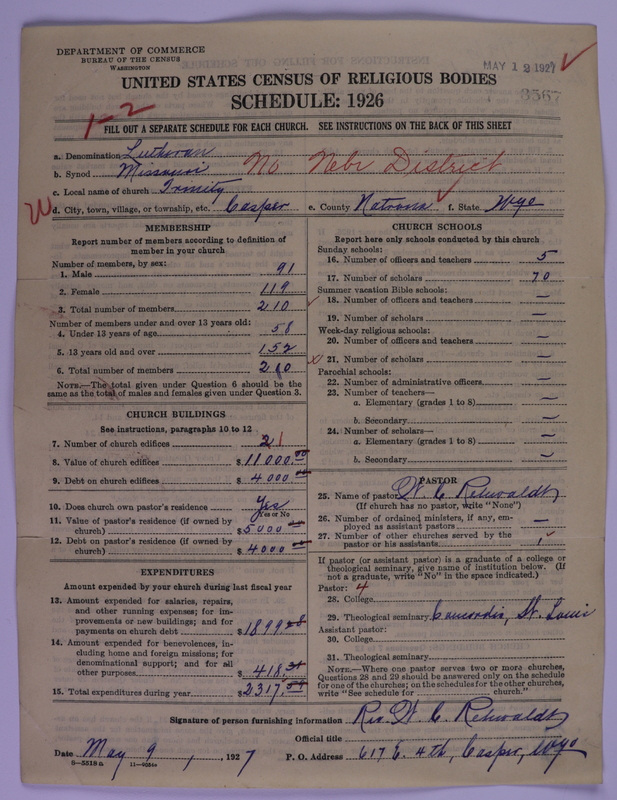 DEPARTMENT OF COMMERCE
BUREAU OF THE CENSUS
WASHINGTON
MAY 12 1927
3567
UNITED STATES CENSUS OF RELIGIOUS BODIES
SCHEDULE: 1926
1-2
FILL OUT A SEPARATE SCHEDULE FOR EACH CHURCH. SEE INSTRUCTIONS ON THE BACK OF THIS SHEET
a. Denomination Lutheran
b. Synod Missouri No Nebr District
c. Local name of church Trinity
d. City, town, village, or township, etc. Casper e. County Natrona f. State Wyo
MEMBERSHIP
Report number of members according to definition of
member in your church
Number of members, by sex:
1. Male 91
2. Female 119
3. Total number of members 210
Number of members under and over 13 years old:
4. Under 13 years of age 58
5. 13 years old and over 152
6. Total number of members 210
NOTE.—The total given under Question 6 should be the
same as the total of males and females given under Question 3.
CHURCH BUILDINGS
See instructions, paragraphs 10 to 12
7. Number of church edifices 2 1
8. Value of church edifices $ 11000.00
9. Debt on church edifices $ 4000
10. Does church own pastor's residence Yes
Yes or No
11. Value of pastor's residence (if owned by
church) $ 5000
12. Debt on pastor's residence (if owned by
church) $ 4000
EXPENDITURES
Amount expended by your church during last fiscal year
13. Amount expended for salaries, repairs,
and other running expenses; for im-
provements or new buildings; and for
payments on church debt $ 1899.
14. Amount expended for benevolences, in-
cluding home and foreign missions; for
denominational support; and for all
other purposes $ 418.
15. Total expenditures during year $ 2317.
CHURCH SCHOOLS
Report here only schools conducted by this church
Sunday schools:
16. Number of officers and teachers 5
17. Number of scholars 70
Summer vacation Bible schools:
18. Number of officers and teachers —
19. Number of scholars —
Week-day religious schools:
20. Number of officers and teachers —
21. Number of scholars —
Parochial schools:
22. Number of administrative officers —
23. Number of teachers—
a. Elementary (grades 1 to 8) —
b. Secondary —
24. Number of scholars—
a. Elementary (grades 1 to 8) —
b. Secondary —
PASTOR
25. Name of pastor W. C. Rehwaldt
(If church has no pastor, write "None")
26. Number of ordained ministers, if any, em-
ployed as assistant pastors —
27. Number of other churches served by the
pastor or his assistants 1
If pastor (or assistant pastor) is a graduate of a college or
theological seminary, give name of institution below. (If
not a graduate, write "No" in the space indicated.)
Pastor: 4
28. College
29. Theological seminary Concordia, St. Louis
Assistant pastor:
30. College
31. Theological seminary
NOTE.—Where one pastor serves two or more churches,
Questions 28 and 29 should be answered only on the schedule
for one of the churches; on the schedules for the other churches,
write "See schedule for church."
Signature of person furnishing information Rev. W. C. Rehwaldt
Official title
Date May 9, 1927 P. O. Address 617 E. 4th, Casper, Wyo
8—5518 a 11—9054